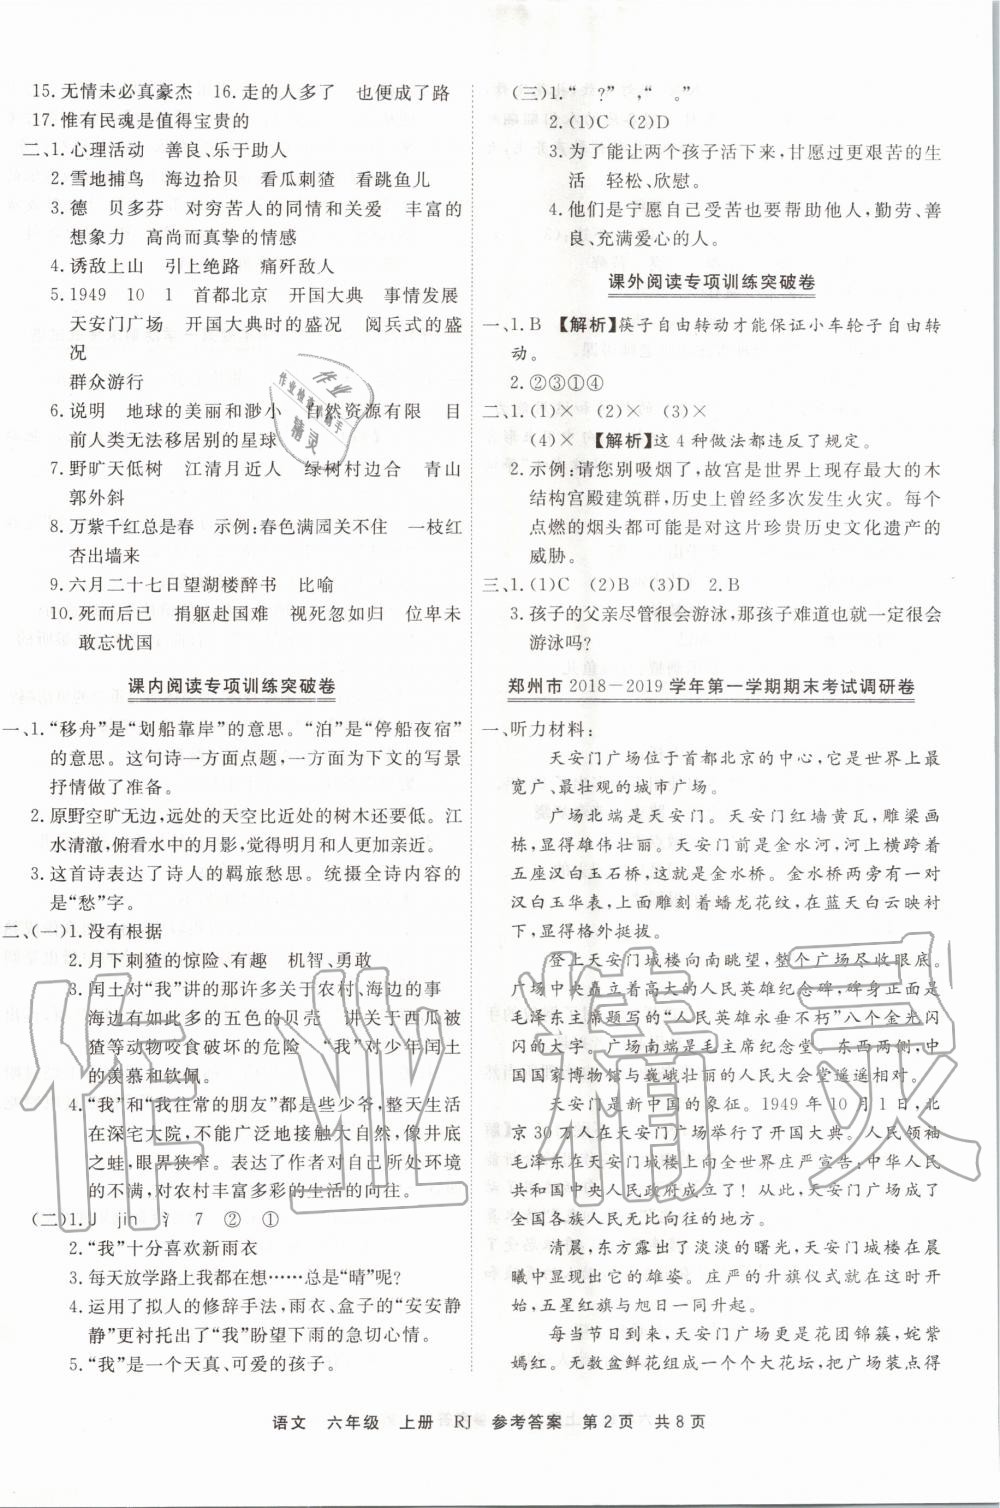 15. 无情未必真豪杰　16. 走的人多了　也便成了路
17. 惟有民魂是值得宝贵的
二、1. 心理活动　善良、乐于助人
2. 雪地捕鸟　海边拾贝　看瓜刺猹　看跳鱼儿
3. 德　贝多芬　对穷苦人的同情和关爱　丰富的
想象力　高尚而真挚的情感
4. 诱敌上山　引上绝路　痛歼敌人
5. 1949　10　1　首都北京　开国大典　事情发展
天安门广场　开国大典时的盛况　阅兵式的盛
况
群众游行
6. 说明　地球的美丽和渺小　自然资源有限　目
前人类无法移居别的星球
7. 野旷天低树　江清月近人　绿树村边合　青山
郭外斜
8. 万紫千红总是春　示例:春色满园关不住　一枝红
杏出墙来
9. 六月二十七日望湖楼醉书　比喻
10. 死而后已　捐躯赴国难　视死忽如归　位卑未
敢忘忧国
课内阅读专项训练突破卷
一、1. “移舟”是“划船靠岸”的意思。“泊”是“停船夜宿”
的意思。这句诗一方面点题,一方面为下文的写景
抒情做了准备。
2. 原野空旷无边,远处的天空比近处的树木还要低。江
水清澈,俯看水中的月影,觉得明月和人更加亲近。
3. 这首诗表达了诗人的羁旅愁思。统摄全诗内容的
是“愁”字。
二、(一)1. 没有根据
2. 月下刺猹的惊险、有趣　机智、勇敢
3. 闰土对“我”讲的那许多关于农村、海边的事
海边有如此多的五色的贝壳　讲关于西瓜被
猹等动物咬食破坏的危险　“我”对少年闰土
的羡慕和钦佩。
4. “我”和“我往常的朋友”都是些少爷,整天生活
在深宅大院,不能广泛地接触大自然,像井底
之蛙,眼界狭窄。表达了作者对开阔的眼界
,对农村丰富多彩的生活的向往。
(二)1. J　jìn　氵　7　②　①
2. “我”十分喜欢新雨衣
3. 每天放学路上我都在想……总是“晴”呢?
4. 运用了拟人的修辞手法,雨衣、盒子的“安安静
静”更衬托出了“我”盼望下雨的急切心情。
5. “我”是一个天真、可爱的孩子。
(三)1. “　?”,“　。”
2. (1)C　(2)D
3. 为了能让两个孩子活下来,甘愿过更艰苦的生
活　轻松、欣慰。
4. 他们是宁愿自己受苦也要帮助他人,勤劳、善
良、充满爱心的人。
课外阅读专项训练突破卷
一、1. B　【解析】筷子自由转动才能保证小车轮子自由转
动。
2. ②③①④
二、1. (1)×　(2)×　(3)×
(4)×　【解析】这 4 种做法都违反了规定。
2. 示例:请您别吸烟了,故宫是世界上现存最大的木
结构宫殿建筑群,历史上曾经多次发生火灾。每个
点燃的烟头都可能是对这片珍贵历史文化遗产的
威胁。
三、1. (1)C　(2)B　(3)D　2. B
3. 孩子的父亲尽管很会游泳,那孩子难道也就一定很会
游泳吗?
郑州市 2018－2019 学年第一学期期末考试调研卷
一、听力材料:
天安门广场位于首都北京的中心,它是世界上最
宽广、最壮观的城市广场。
广场北端是天安门。天安门红墙黄瓦,雕梁画
栋,显得雄伟壮丽。天安门前是金水河,河上横跨着
五座汉白玉石桥,这就是金水桥。金水桥两旁有一对
汉白玉华表,上面雕刻着蟠龙花纹,在蓝天白云映衬
下,显得格外挺拔。
登上天安门城楼向南眺望,整个广场尽收眼底。
广场中央矗立着高大的人民英雄纪念碑,碑身正面是
毛泽东主席题写的“人民英雄永垂不朽”八个金光闪
闪的大字。广场南端是毛主席纪念堂。东西两侧,中
国国家博物馆与巍峨壮丽的人民大会堂遥遥相对。
天安门是新中国的象征。1949 年 10 月 1 日,北
京 30 万人在天安门广场举行了开国大典。人民领袖
毛泽东在天安门城楼上向全世界庄严宣告:中华人民
共和国中央人民政府成立了！从此,天安门广场成了
全国各族人民无比向往的地方。
清晨,东方露出了淡淡的曙光,天安门城楼在晨
曦中显现出它的雄姿。庄严的升旗仪式就在这时开
始,五星红旗与旭日一同升起。
每当节日到来,天安门广场更是花团锦簇,姹紫
嫣红。无数盆鲜花组成一个个大花坛,把广场装点得
语文　六年级　上册　RJ　参考答案　第 2 页　共 8 页
作业精灵